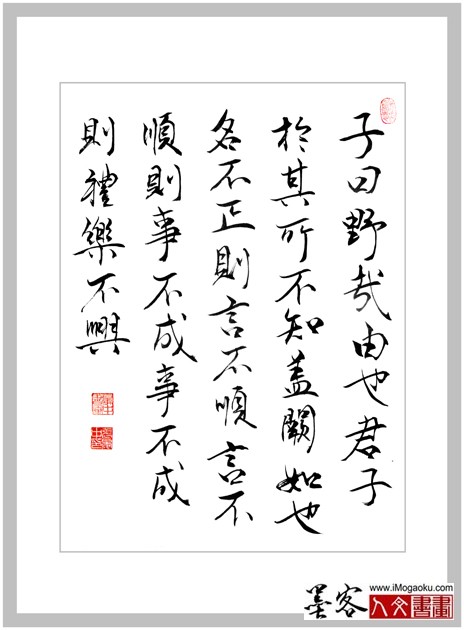 子曰野哉由也君子
於其所不知盖闕如也
名不正則言不順言不
順則事不成事不成
則禮樂不興
墨客
www.iMogaoku.com
人文書畫